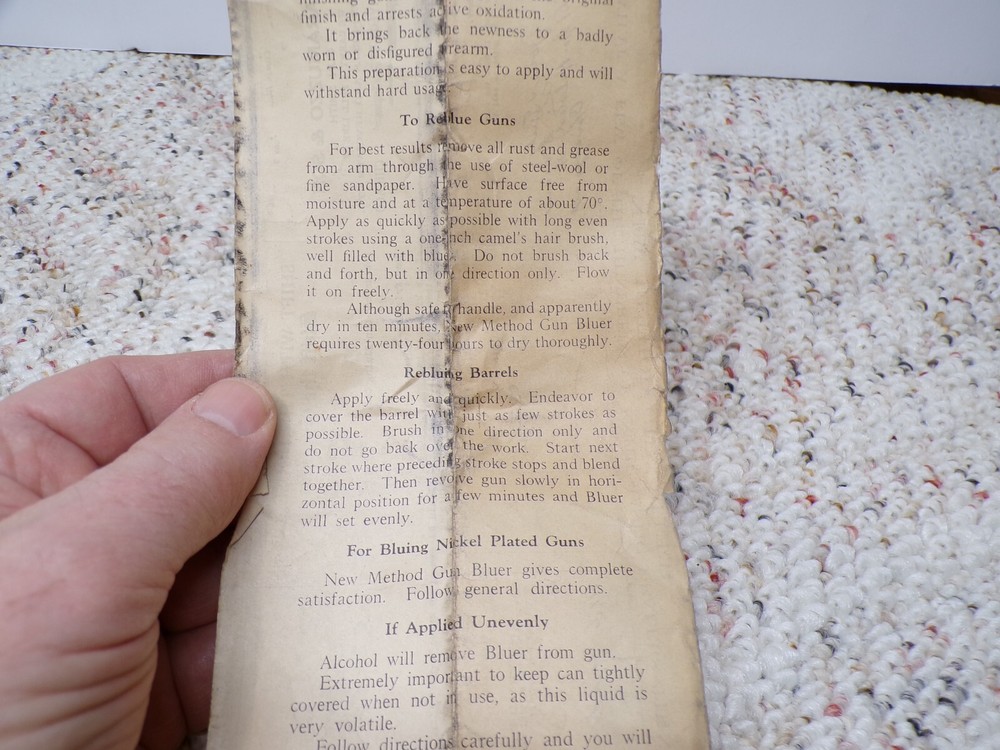 finish and arrests active oxidation.
It brings back the newness to a badly
worn or disfigured firearm.
This preparation is easy to apply and will
withstand hard usage.
To Reblue Guns
For best results remove all rust and grease
from arm through the use of steel-wool or
fine sandpaper. Have surface free from
moisture and at a temperature of about 70°.
Apply as quickly as possible with long even
strokes using a one-inch camel's hair brush,
well filled with bluer. Do not brush back
and forth, but in one direction only. Flow
it on freely.
Although safe to handle, and apparently
dry in ten minutes, New Method Gun Bluer
requires twenty-four hours to dry thoroughly.
Rebluing Barrels
Apply freely and quickly. Endeavor to
cover the barrel with just as few strokes as
possible. Brush in one direction only and
do not go back over the work. Start next
stroke where preceding stroke stops and blend
together. Then revolve gun slowly in hori-
zontal position for a few minutes and Bluer
will set evenly.
For Bluing Nickel Plated Guns
New Method Gun Bluer gives complete
satisfaction. Follow general directions.
If Applied Unevenly
Alcohol will remove Bluer from gun.
Extremely important to keep can tightly
covered when not in use, as this liquid is
very volatile.
Follow directions carefully and you will